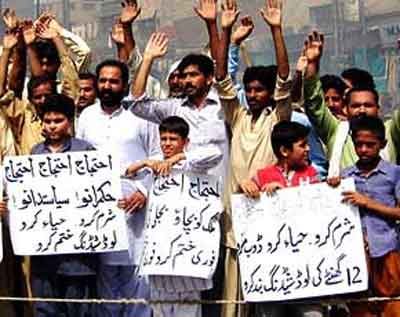 احتجاج احتجاج احتجاج
حکمرانو! سیاستدانو!
شرم کرو حیاء کرو
لوڈشیڈنگ ختم کرو
احتجاج احتجاج
ملک کو بچاؤ
فوری ختم کرو
شرم کرو۔ حیاء کرو ڈوب مرو
12 گھنٹے کی لوڈشیڈنگ بند کرو